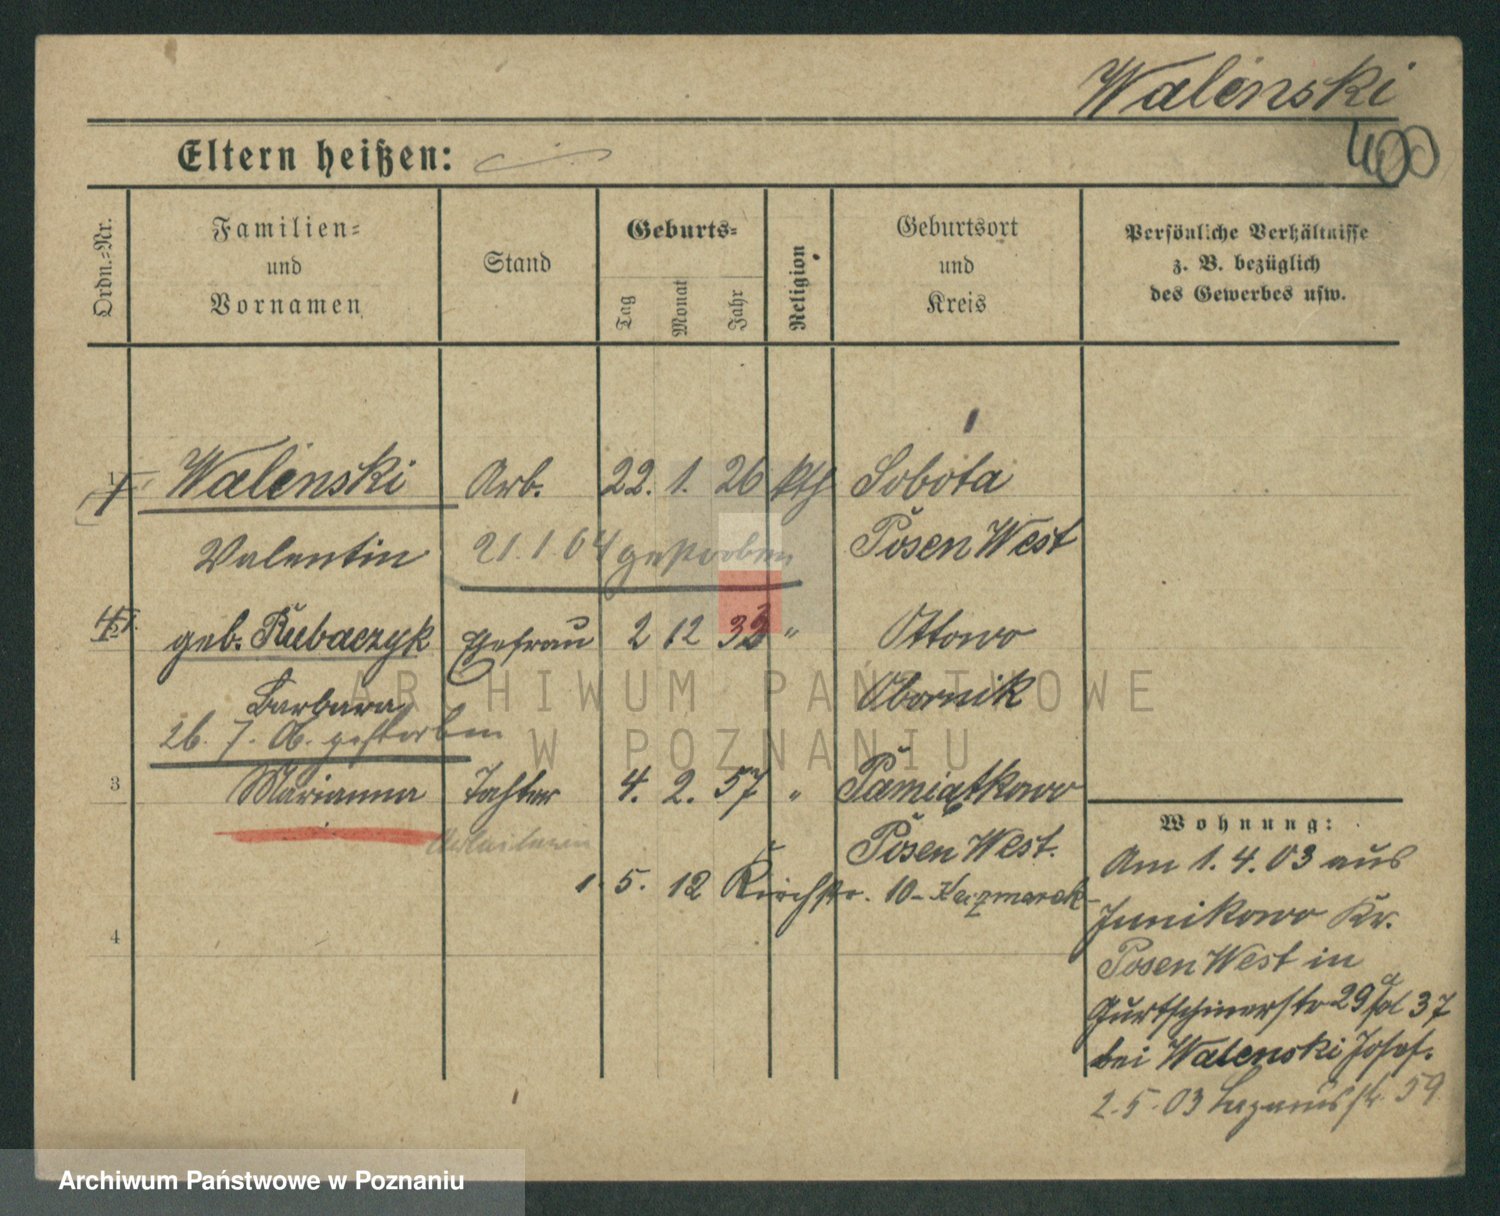 Walenski
400
Eltern heißen:
Ordn.-Nr.
Familien-
und
Vornamen
Stand
Geburts-
Tag
Monat
Jahr
Religion
Geburtsort
und
Kreis
Persönliche Verhältnisse
z. B. bezüglich
des Gewerbes usw.
1 Walenski Arb. 22. 1. 26 kth Sobota
Valentin 21.1.04 gestorben Posen West
geb. Kubaczyk Ehefrau 2 12 33 " Ottowo
Barbara Obornik
26. 7. 06. gestorben
3 Marianna Tochter 4. 2. 57 " Pamiątkowo
Arbeiterin Posen West.
1. 5. 12 Kirchstr. 10 - Kaczmarek -
4
Wohnung:
Am 1. 4. 03 aus
Junikowo Kr.
Posen West in
Gurtschinerstr 29a 37
bei Walenski Josef.
2. 5. 03 Lazarusstr. 59
ARCHIWUM PAŃSTWOWE
W POZNANIU
Archiwum Państwowe w Poznaniu